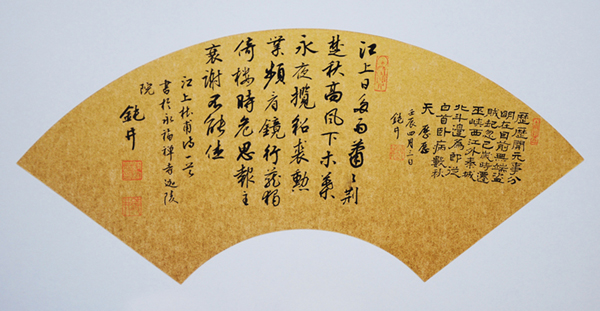 歷歷開元事分
明在目前無端盜
賊起忽已歲時遷
巫峽西江外秦城
北斗邊為郎從
白首臥病數秋
天 歷歷
壬辰四月日
鈍
江上日多雨蕭〻荊
楚秋高風下木葉
永夜攬貂裘勳
業頻看鏡行藏獨
倚樓時危思報主
衰謝不能休
江上 杜甫詩一首
書於永福禪寺迦陵
院 鈍